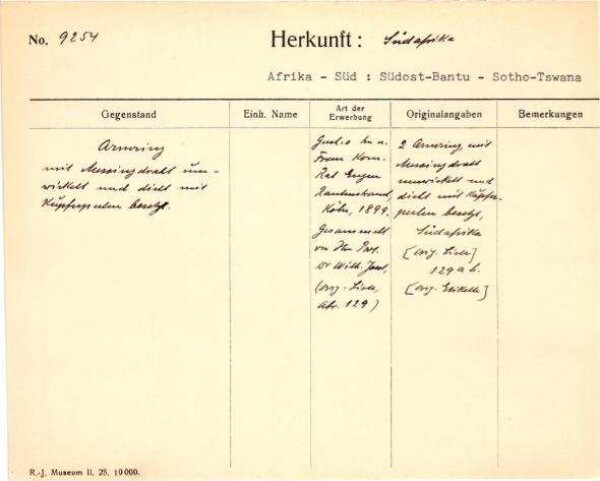 No. 9254
Herkunft: Südafrika
Afrika - Süd : Südost-Bantu - Sotho-Tswana
Gegenstand
Einh. Name
Art der
Erwerbung
Originalangaben
Bemerkungen
Armring
mit Messingdraht um-
wickelt und dicht mit
Kupferperlen besetzt.
Frau Kom.
Rat Eugen
Rautenstrauch,
Köln, 1899,
Gesammelt
von Hrn Prof.
Dr Wilh. Joest,
(orig. Liste,
129)
2 Armringe mit
Messingdraht
umwickelt und
dicht mit Kupfer-
perlen besetzt,
Südafrika
[orig. Liste]
129 a b.
[orig. Etikette]
R.-J. Museum II. 28. 10000.